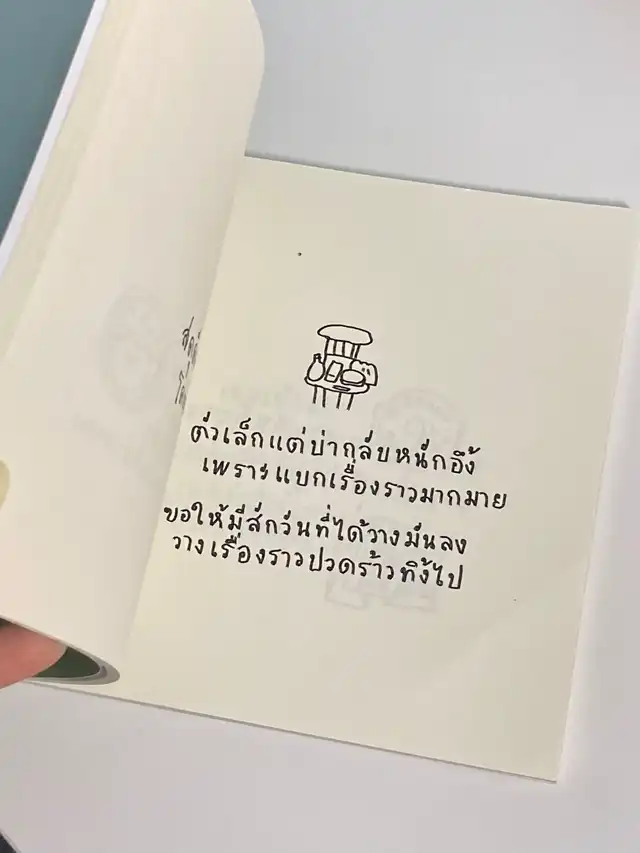 ตัวเล็กแต่บ่ากลับหนักอึ้ง
เพราะแบกเรื่องราวมากมาย
ขอให้มีสักวันที่ได้วางมันลง
วางเรื่องราวปวดร้าวทิ้งไป